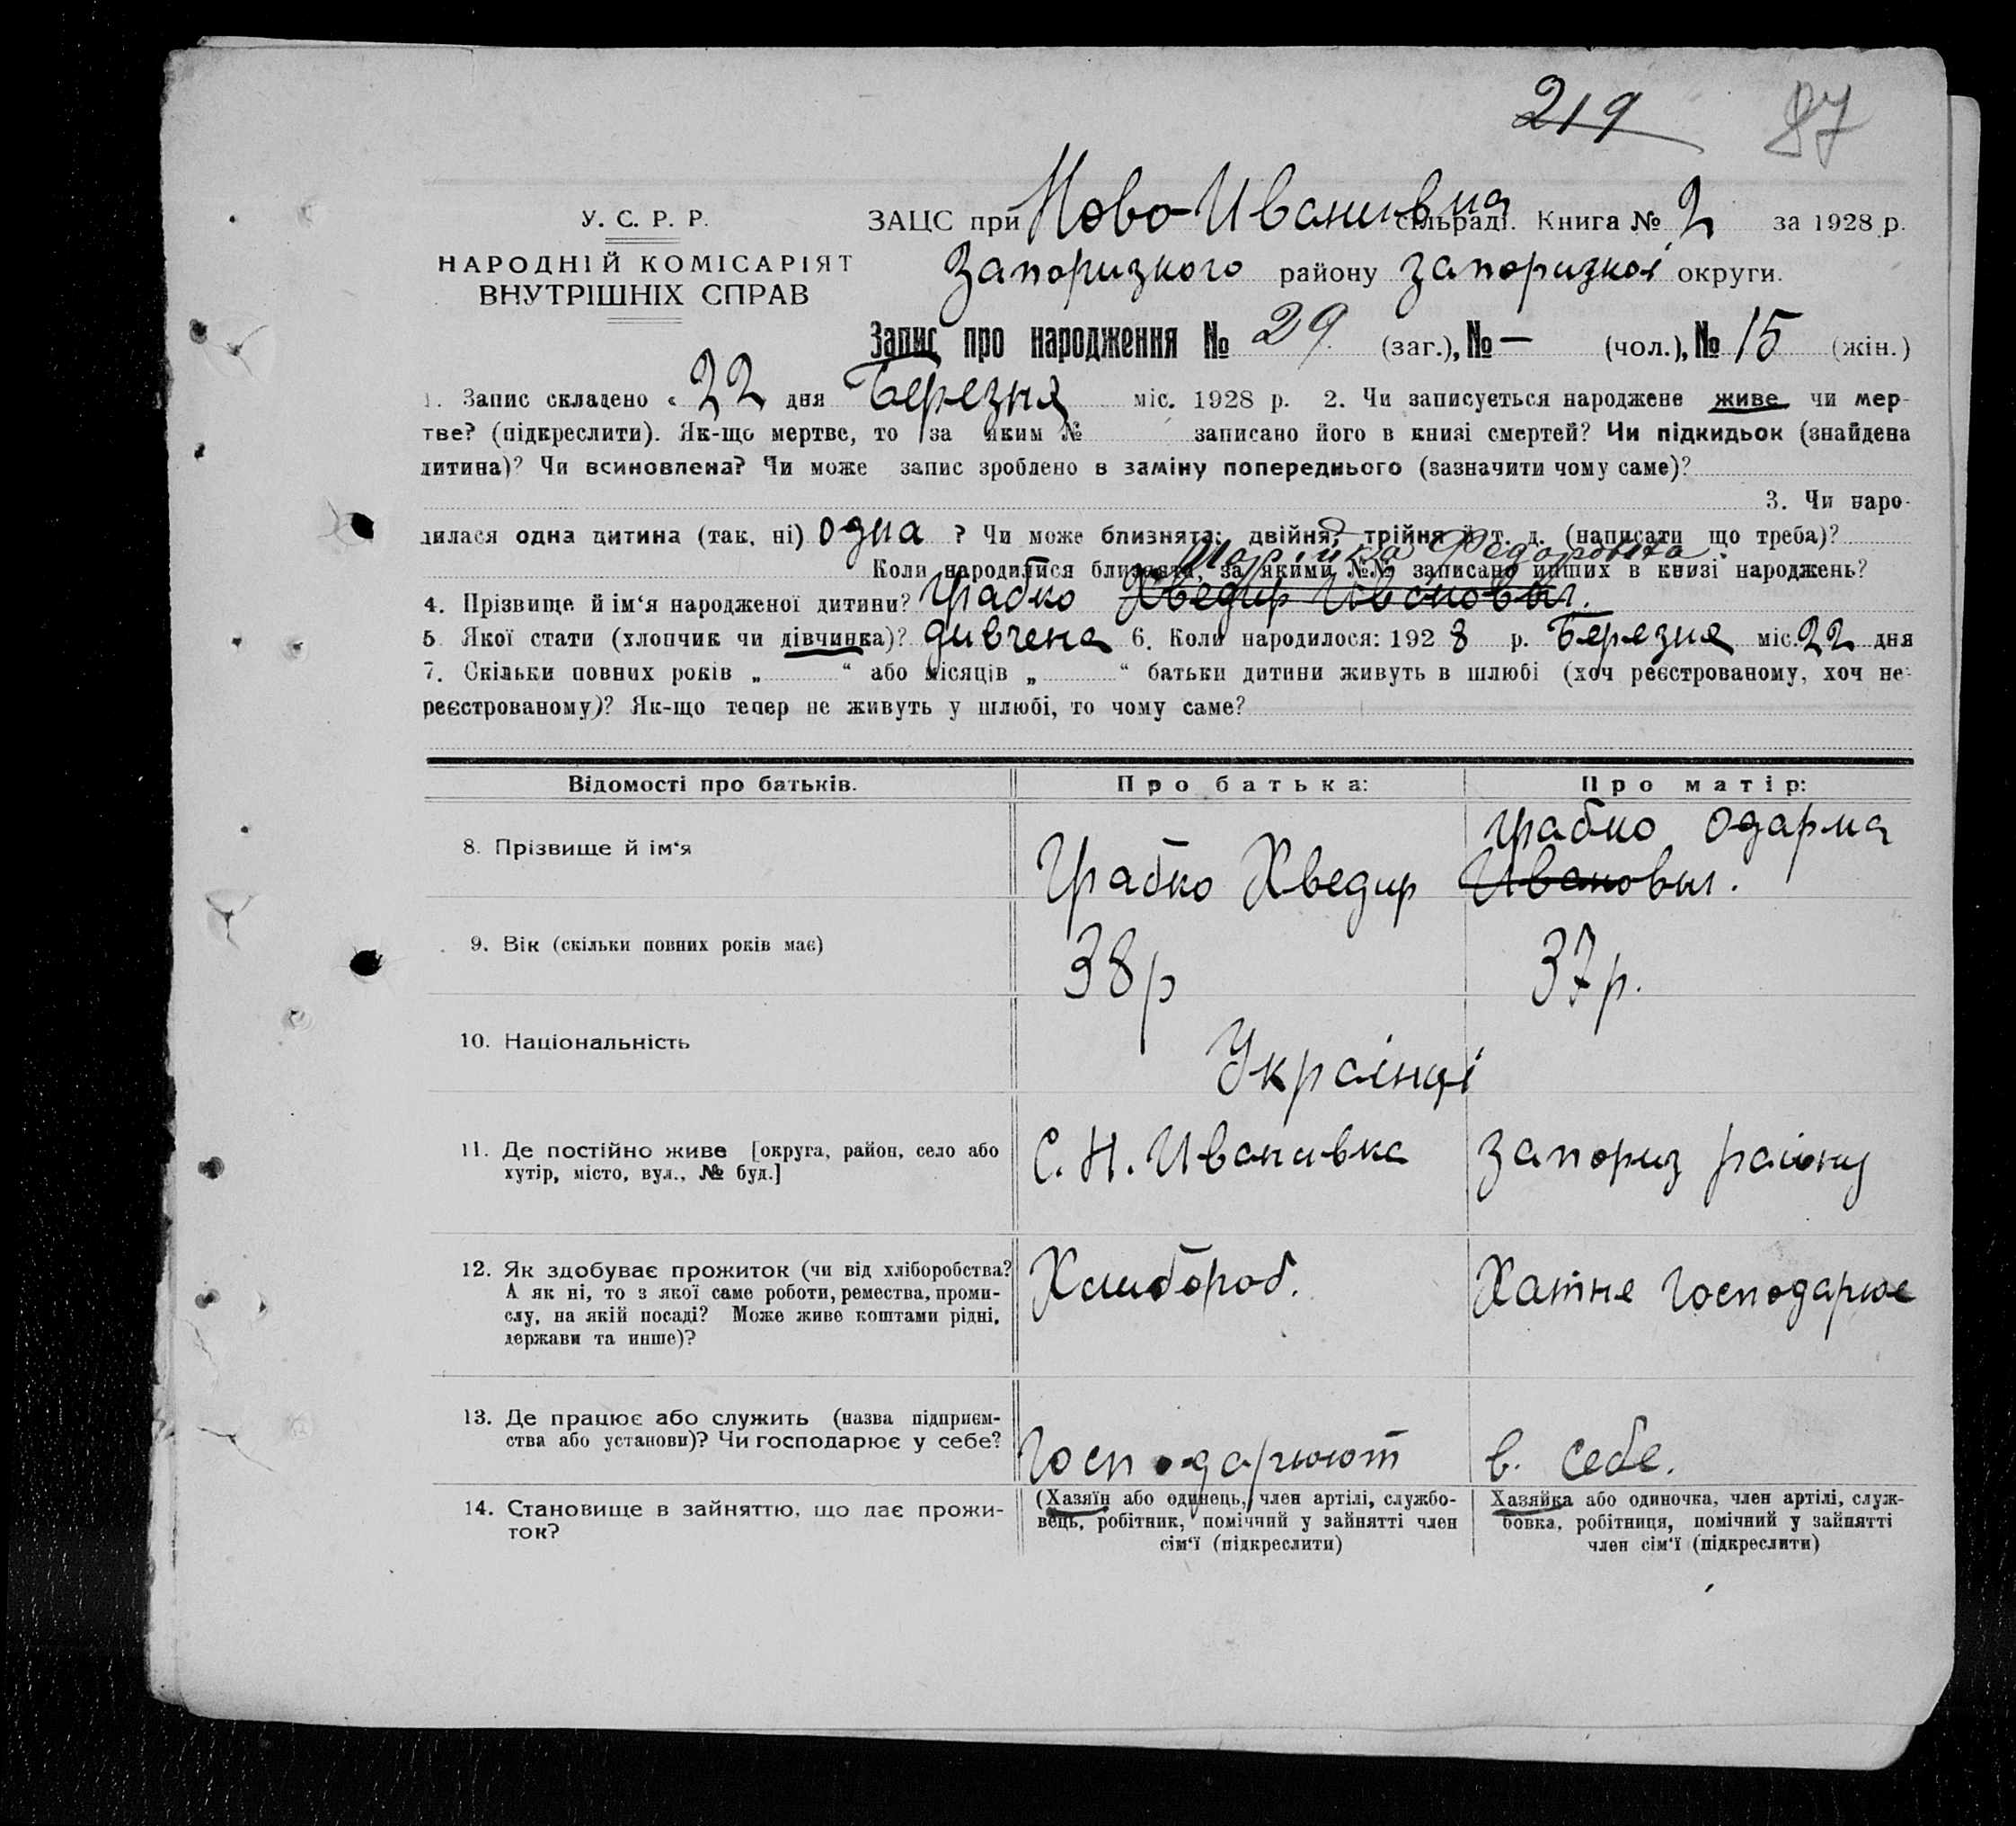 219 87
У. С. Р. Р.
НАРОДНІЙ КОМІСАРІЯТ
ВНУТРІШНІХ СПРАВ
ЗАЦС при Ново-Иванивна сільраді. Книга № 2 за 1928 р.
Запоризкого району Запоризкоі округи.
Запис про народження № 29 (заг.), № — (чол.), № 15 (жін.)
1. Запис складено « 22 дня Березня міс. 1928 р. 2. Чи записується народжене живе чи мер-
тве? (підкреслити). Як-що мертве, то за яким № записано його в книзі смертей? Чи підкидьок (знайдена
дитина)? Чи всиновлена? Чи може запис зроблено в заміну попереднього (зазначити чому саме)?
3. Чи наро-
дилася одна дитина (так, ні) Одна ? Чи може близнята: двійня, трійня й т. д. (написати що треба)?
Коли народилися близнята, за якими №№ записано инших в книзі народжень?
Марійка Федоровна
4. Прізвище й ім‘я народженої дитини? Грабко Хведир Ивановы.
5 Якої стати (хлопчик чи дівчинка)? дивчена 6. Коли народилося: 192 8 р. Березня міс. 22 дня
7. Скільки повних років „ “ або місяців „ “ батьки дитини живуть в шлюбі (хоч реєстрованому, хоч не-
реєстрованому)? Як-що тепер не живуть у шлюбі, то чому саме?
Відомості про батьків. Про батька: Про матір:
8. Прізвище й ім‘я Грабко Хведир Ивановы. Грабко Одарка
9. Вік (скільки повних років має) 38р 37р.
10. Національність Украінці
11. Де постійно живе [округа, район, село або
хутір, місто, вул., № буд.] С. Н. Иванивка Запориз району
12. Як здобуває прожиток (чи від хліборобства?
А як ні, то з якої саме роботи, ремества, проми-
слу, на якій посаді? Може живе коштами рідні,
держави та инше)? Хлибороб. Хатне Господарює
13. Де працює або служить (назва підприєм-
ства або установи)? Чи господарює у себе? Господарюют в. себе.
14. Становище в зайняттю, що дає прожи-
ток?
(Хазяїн або одинець, член артілі, службо-
вець, робітник, помічний у зайнятті член
сім‘ї (підкреслити)
Хазяйка або одиночка, член артілі, служ-
бовка, робітниця, помічний у зайнятті
член сім‘ї (підкреслити)